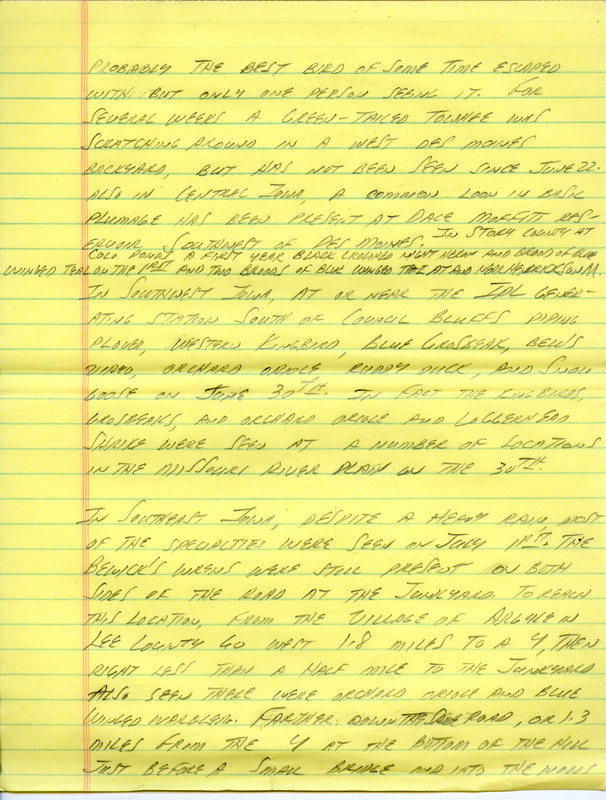 PROBABLY THE BEST BIRD OF SOME TIME ESCAPED
WITH BUT ONLY ONE PERSON SEEING IT. FOR
SEVERAL WEEKS A GREEN-TAILED TOWHEE WAS
SCRATCHING AROUND IN A WEST DES MOINES
BACKYARD, BUT HAS NOT BEEN SEEN SINCE JUNE 22.
ALSO IN CENTRAL IOWA, A COMMON LOON IN BASIC
PLUMAGE HAS BEEN PRESENT AT DALE MOFFITT RES-
ERVOIR SOUTHWEST OF DES MOINES. IN STORY COUNTY AT
COLO PONDS A FIRST YEAR BLACK CROWNED NIGHT HERON AND BROOD OF BLUE
WINGED TEAL ON THE 1ST AND TWO BROODS OF BLUE WINGED TEAL AT AND NEAR HENDRICKSON M.
IN SOUTHWEST IOWA, AT OR NEAR THE IPL GENER-
ATING STATION SOUTH OF COUNCIL BLUFFS PIPING
PLOVER, WESTERN KINGBIRD, BLUE GROSBEAK, BELL'S
VIREO, ORCHARD ORIOLE, RUDDY DUCK, AND SNOW
GOOSE ON JUNE 30TH. IN FACT THE KINGBIRDS,
GROSBEAKS, AND ORCHARD ORIOLE AND LOGGERHEAD
SHRIKE WERE SEEN AT A NUMBER OF LOCATIONS
IN THE MISSOURI RIVER PLAIN ON THE 30TH.
IN SOUTHEAST IOWA, DESPITE A HEAVY RAIN, MOST
OF THE SPECIALTIES WERE SEEN ON JULY 1ST. THE
BEWICK'S WRENS WERE STILL PRESENT ON BOTH
SIDES OF THE ROAD AT THE JUNKYARD. TO REACH
THIS LOCATION, FROM THE VILLAGE OF ARGYLE IN
LEE COUNTY GO WEST 1.8 MILES TO A Y, THEN
RIGHT LESS THAN A HALF MILE TO THE JUNKYARD
ALSO SEEN THERE WERE ORCHARD ORIOLE AND BLUE
WINGED WARBLER. FARTHER DOWN THE SAME ROAD, OR 1.3
MILES FROM THE Y AT THE BOTTOM OF THE HILL
JUST BEFORE A SMALL BRIDGE AND INTO THE WOODS